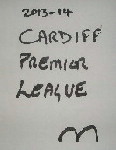 2013-14
CARDIFF
PREMIER
LEAGUE